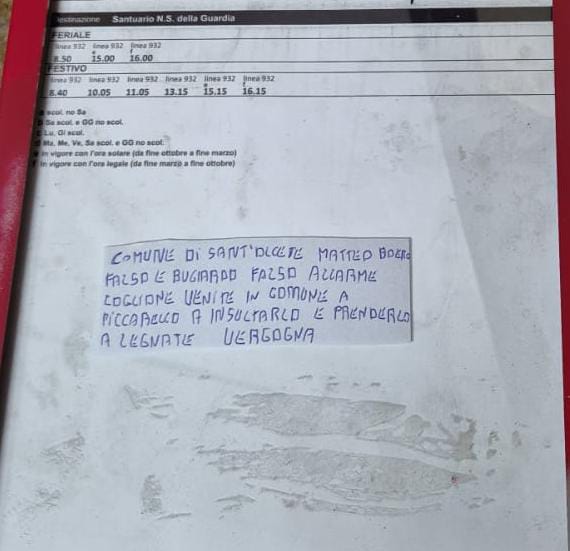 Destinazione Santuario N.S. della Guardia
FERIALE
linea 932 linea 932 linea 932
e f
8.50 15.00 16.00
FESTIVO
linea 932 linea 932 linea 932 linea 932 linea 932 linea 932
e f
8.40 10.05 11.05 13.15 15.15 16.15
a scol. no Sa
b Sa scol. e GG no scol.
c Lu, Gi scol.
d Ma, Me, Ve, Sa scol. e GG no scol.
e in vigore con l'ora solare (da fine ottobre a fine marzo)
f in vigore con l'ora legale (da fine marzo a fine ottobre)
COMUNE DI SANT'OLCETE MATTEO BOERO
FALSO E BUGIARDO FALSO ALLARME
COGLIONE VENITE IN COMUNE A
PICCARELLO A INSULTARLO E PRENDERLO
A LEGNATE VERGOGNA